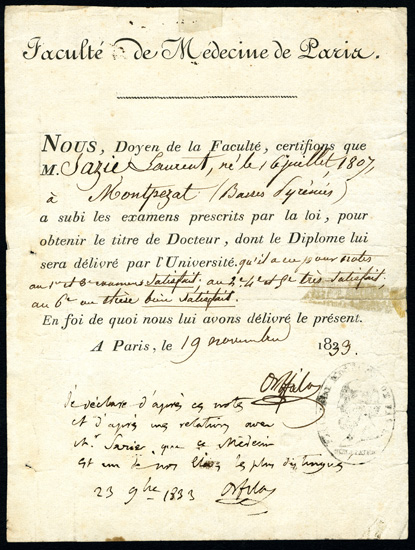 Faculté de Médecine de Paris.
NOUS, Doyen de la Faculté, certifions que
M. Sazie Laurent, né le 16 juillet 1807,
à Montpezat (Basses Pyrénées)
a subi les examens prescrits par la loi, pour
obtenir le titre de Docteur, dont le Diplome lui
sera délivré par l'Université. qu'il a eu pour notes
au 1er et 3e examens Satisfait, au 2e 4e et 5e très satisfait,
au 6e ou thèse bien satisfait.
En foi de quoi nous lui avons délivré le présent.
A Paris, le 19 novembre 1833.
Orfila
Je déclare d'après ces notes
et d'après mes relations avec
Mr. Sazie, que ce Médecin
est un de nos élèves les plus distingués
23 9bre 1833 Orfila